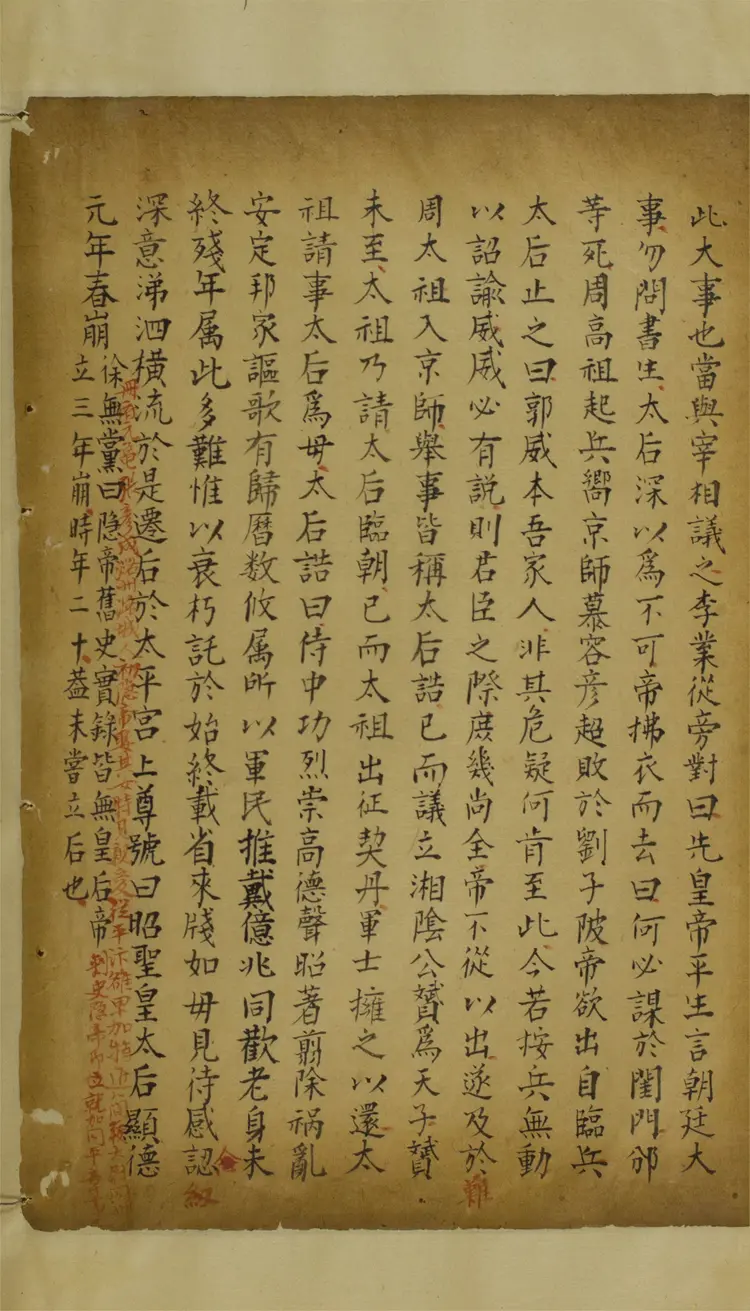 此大事也當與宰相議之李業從旁對曰先皇帝平生言朝廷大
事勿問書生太后深以爲不可帝拂衣而去曰何必謀於閨門邠
等死周高祖起兵嚮京師慕容彦超敗於劉子陂帝欲出自臨兵
太后止之曰郭威本吾家人非其危疑何肯至此今若按兵無動
以詔諭威威必有説則君臣之際庻幾尚全帝不從以出遂及於難
周太祖入京師舉事皆稱太后誥已而議立湘陰公贇爲天子贇
未至太祖乃請太后臨朝已而太祖出征契丹軍士擁之以還太
祖請事太后爲母太后誥曰侍中功烈崇高德聲昭著翦除禍亂
安定邦家謳歌有歸曆数攸属所以軍民推戴億兆同歡老身未
終殘年属此多難惟以衰朽託於始終載省來牋如母見待感認
深意涕泗横流於是遷后於太平宮上尊號曰昭聖皇太后顯德
元年春崩
徐無黨曰隐帝舊史實錄皆無皇后帝
立三年崩時年二十葢未嘗立后也